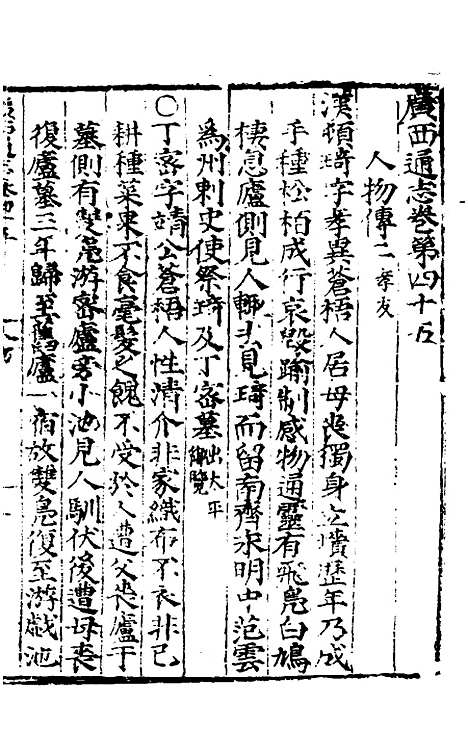 廣西通志卷第四十五
人物傳二 孝友
漢頓琦字孝異蒼梧人居母喪獨身立墳歷年乃成
手種松栢成行哀毀踰制感物通靈有飛鳧白鳩
棲息廬側見人輒去見琦而留南齊永明中范雲
為州刺史使祭琦及丁密墓出太平御覽
○丁密字靖公蒼梧人性清介非家織布不衣非已
耕種菜果不食毫髮之餽不受於人遭父喪廬于
墓側有雙鳧游密廬旁小池見人馴伏後遭母喪
復廬墓三年歸至舊廬一宿放雙鳧復至游戲池